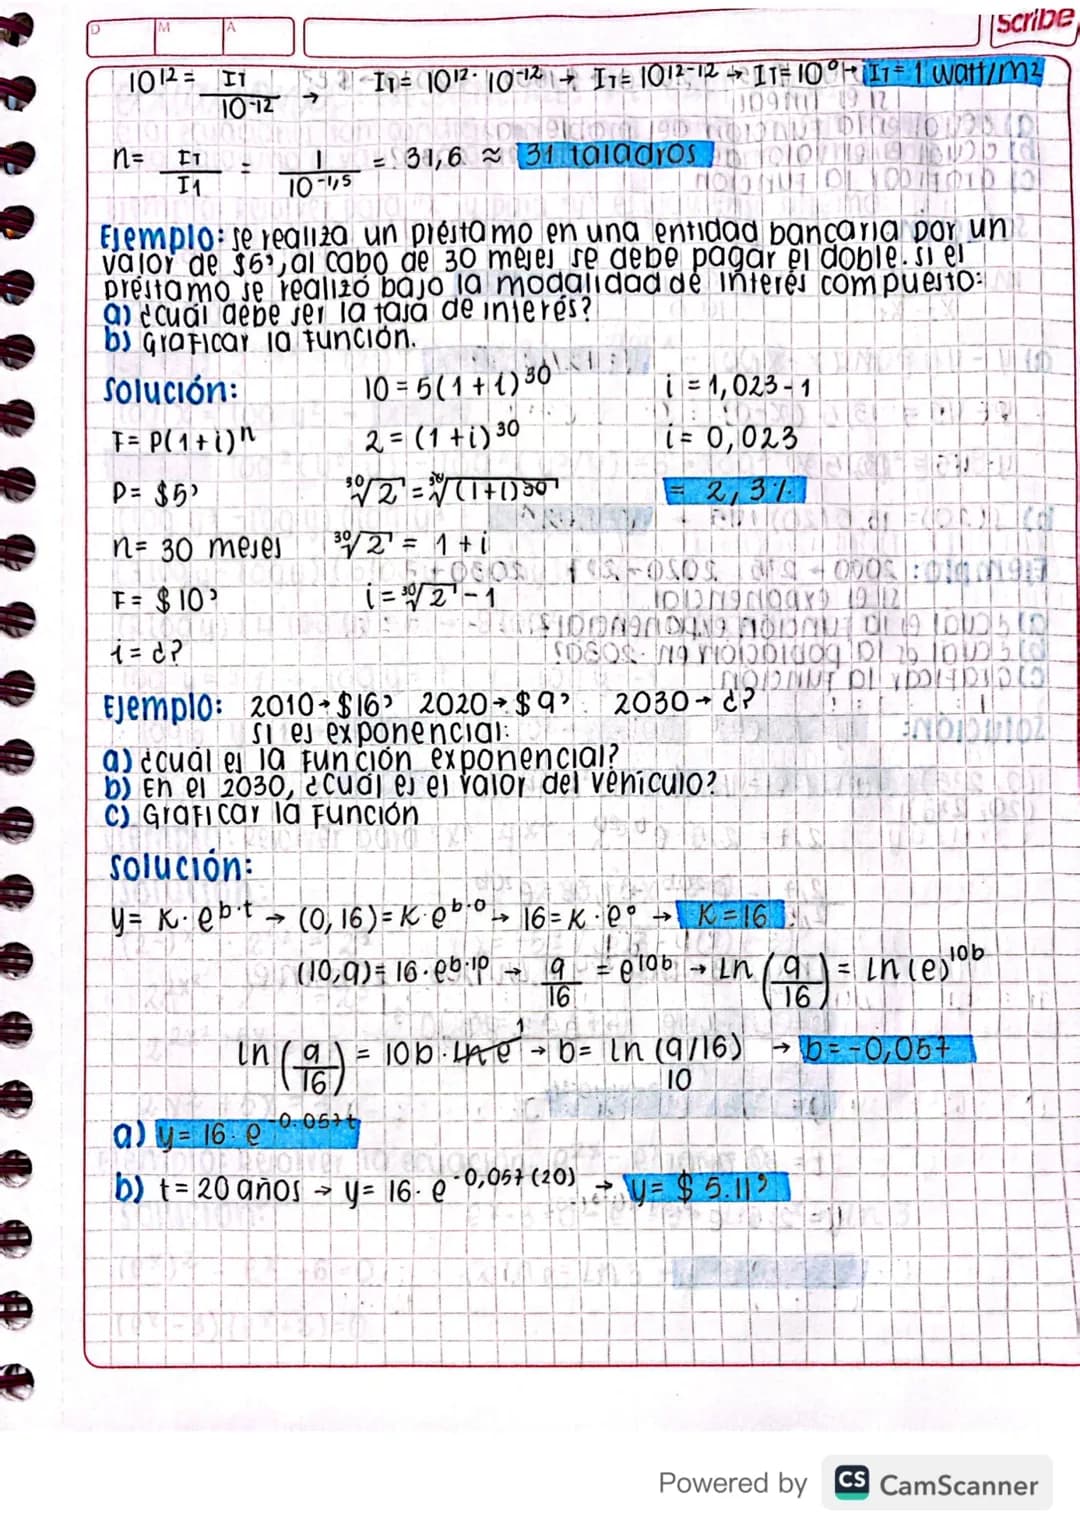 D M A
Scribe
10^12 = IT / 10^-12 → IT = 10^12 · 10^-12 → IT = 10^12-12 → IT = 10^0 → IT = 1 watt/m2
n = IT / I1 = 1 / 10^-1,5 = 31,6 ≈ 31 taladros
Ejemplo: se realiza un préstamo en una entidad bancaria por un
valor de $5', al cabo de 30 meses se debe pagar el doble. si el
préstamo se realizó bajo la modalidad de interés compuesto:
a) ¿cuál debe ser la tasa de interés?
b) Graficar la función.
Solución: 10 = 5(1+i)^30 i = 1,023 - 1
F = P(1+i)^n 2 = (1+i)^30 i = 0,023
P = $5' ³⁰√2 = ³⁰√(1+i)^30 = 2,3%
n = 30 meses ³⁰√2 = 1 + i
F = $10' i = ³⁰√2 - 1
i = ¿?
Ejemplo: 2010 → $16' 2020 → $9'. 2030 → ¿?
si es exponencial:
a) ¿cuál es la función exponencial?
b) En el 2030, ¿Cuál es el valor del vehículo?
c) Graficar la Función
Solución:
y = K · e^b·t → (0, 16) = K · e^b·0 → 16 = K · e^0 → K = 16
(10,9) = 16 · e^b·10 → 9/16 = e^10b → Ln (9/16) = Ln (e)^10b
ln (9/16) = 10b · Ln e 1 → b = ln (9/16) / 10 → b = -0,057
a) y = 16 · e^-0.057t
b) t = 20 años → y = 16 · e^-0,057(20) → y = $ 5.11'
Powered by CS CamScanner